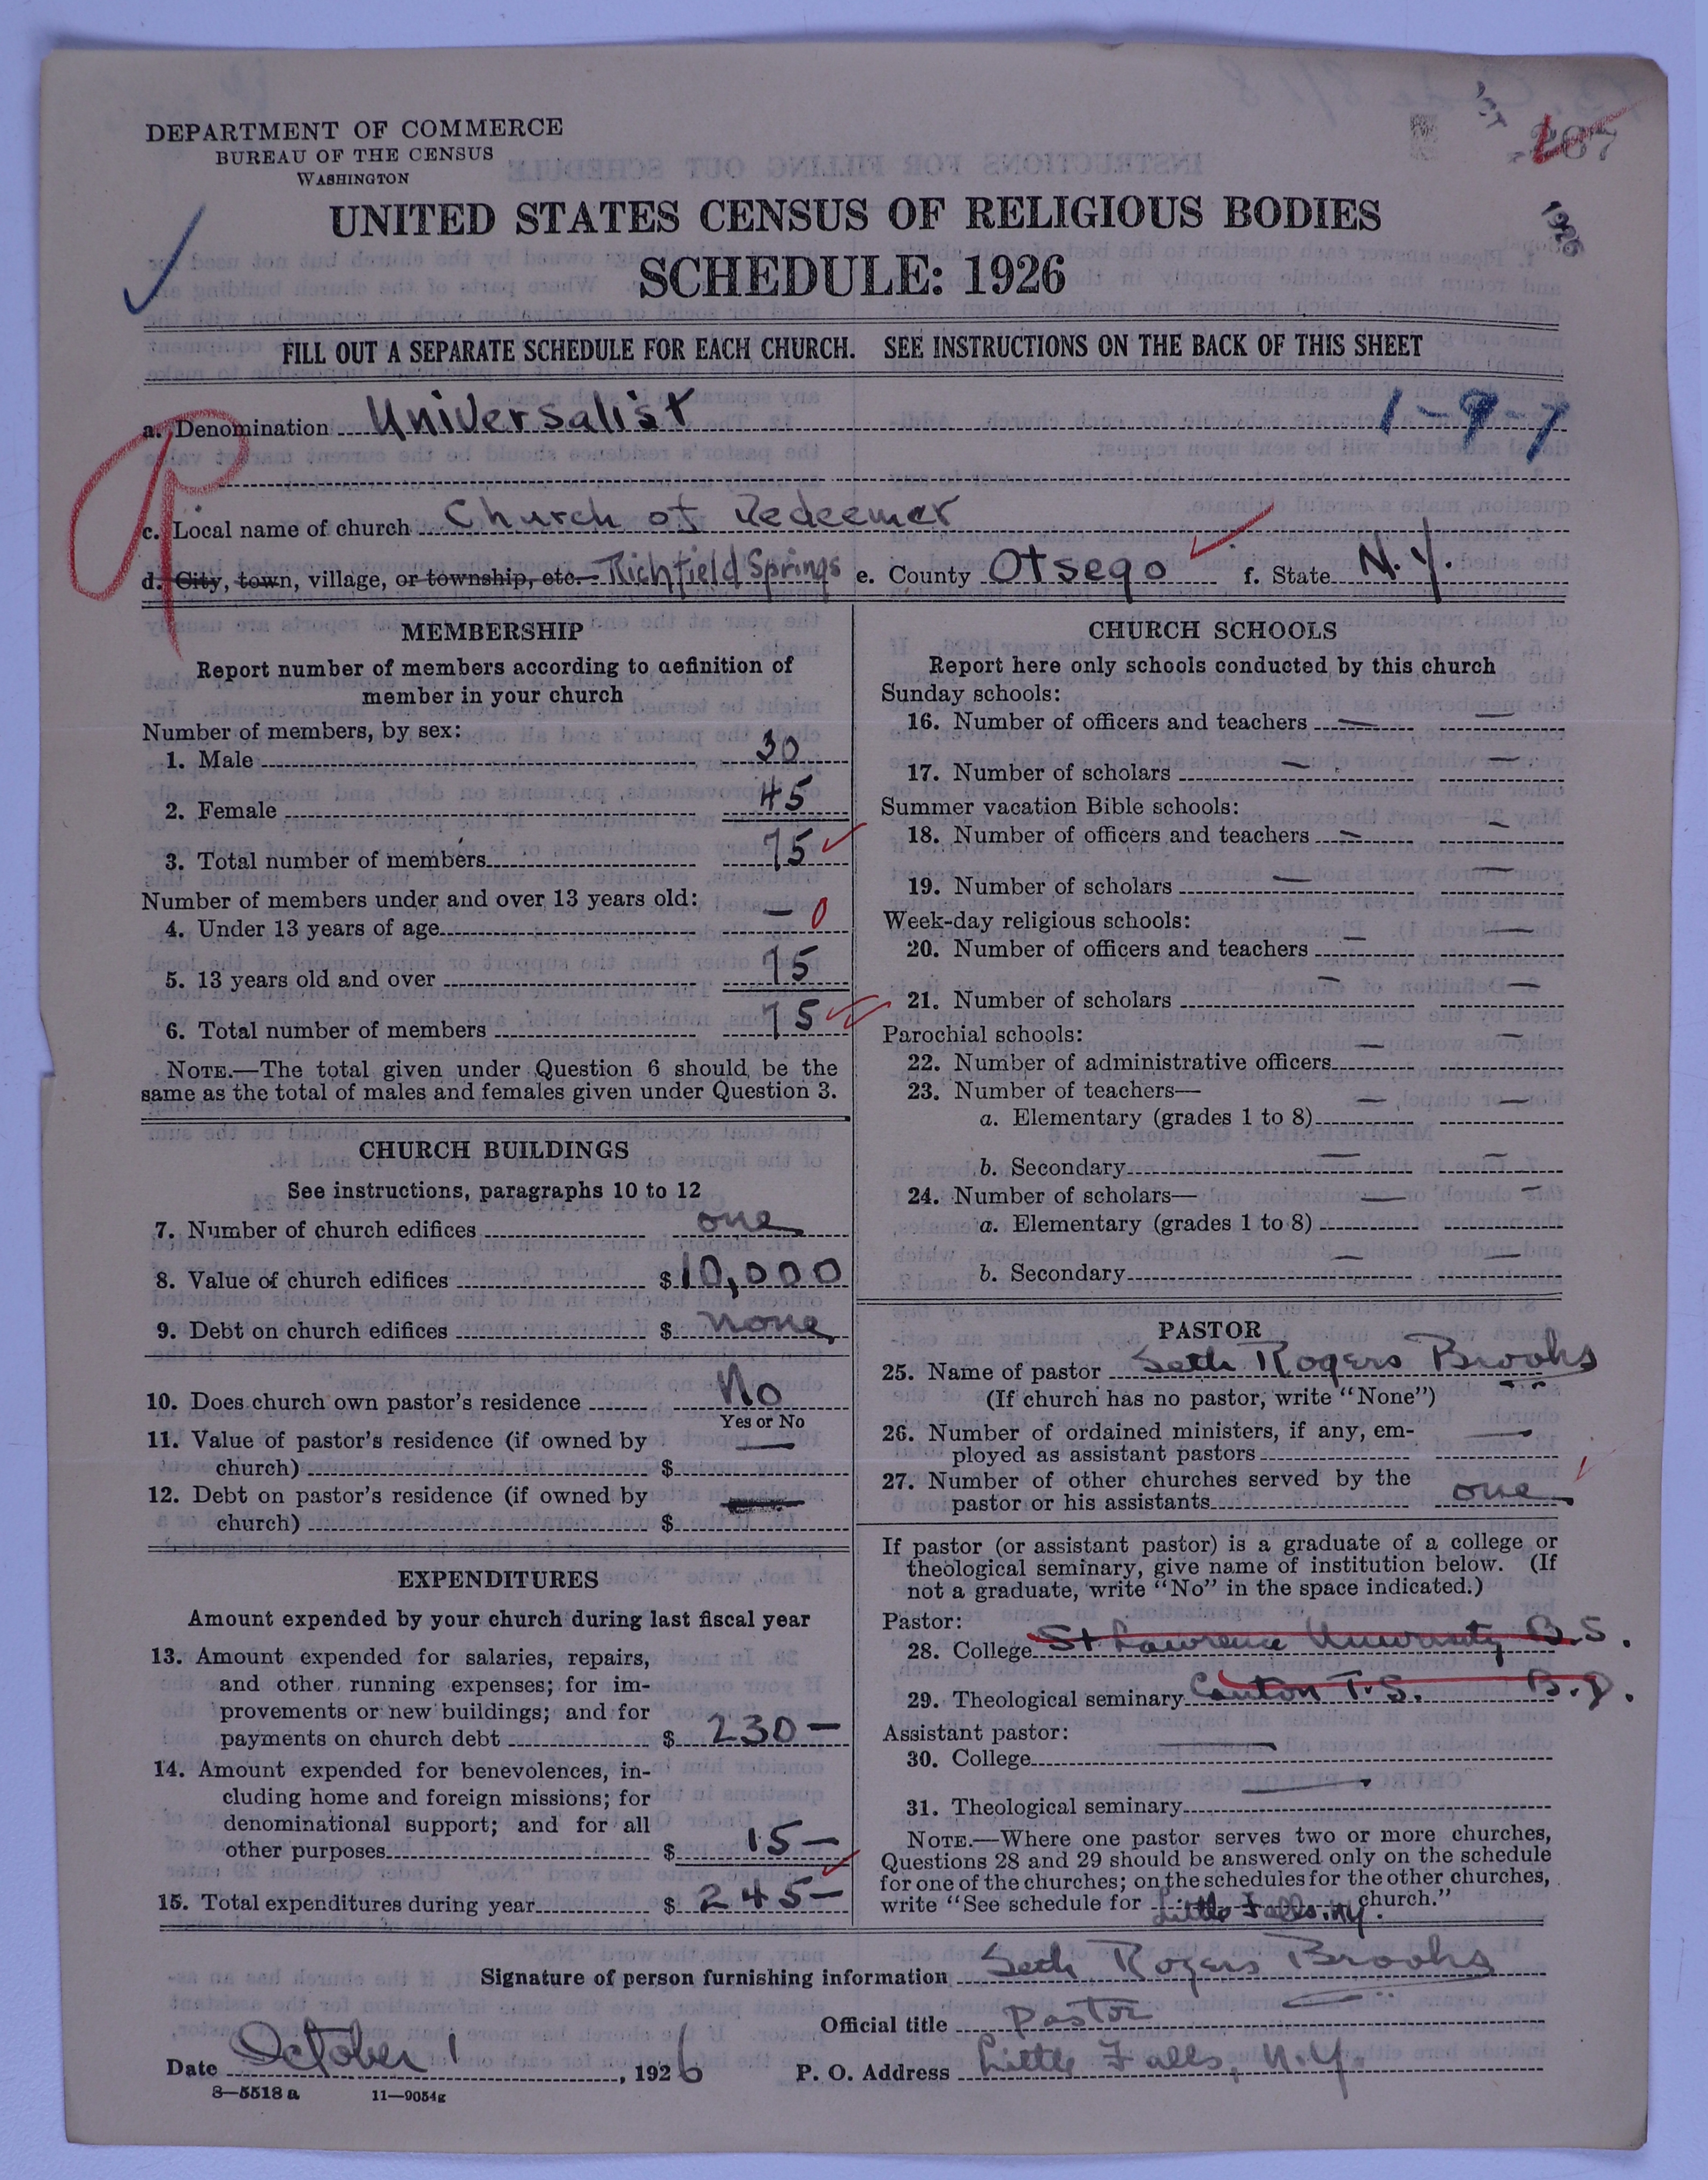 DEPARTMENT OF COMMERCE
BUREAU OF THE CENSUS
WASHINGTON
UNITED STATES CENSUS OF RELIGIOUS BODIES
1926
SCHEDULE: 1926
FILL OUT A SEPARATE SCHEDULE FOR EACH CHURCH. SEE INSTRUCTIONS ON THE BACK OF THIS SHEET
a. Denomination Universalist 1-9-7
c. Local name of church Church of Redeemer
d. City, town, village, or township, etc. Richfield Springs e. County Otsego f. State N.Y.
MEMBERSHIP
Report number of members according to definition of
member in your church
Number of members, by sex:
1. Male 30
2. Female 45
3. Total number of members 75
Number of members under and over 13 years old:
4. Under 13 years of age — 0
5. 13 years old and over 75
6. Total number of members 75
NOTE.—The total given under Question 6 should be the
same as the total of males and females given under Question 3.
CHURCH BUILDINGS
See instructions, paragraphs 10 to 12
7. Number of church edifices one
8. Value of church edifices $ 10,000
9. Debt on church edifices $ none
10. Does church own pastor's residence No
Yes or No
11. Value of pastor's residence (if owned by
church) $ —
12. Debt on pastor's residence (if owned by
church) $ —
EXPENDITURES
Amount expended by your church during last fiscal year
13. Amount expended for salaries, repairs,
and other running expenses; for im-
provements or new buildings; and for
payments on church debt $ 230—
14. Amount expended for benevolences, in-
cluding home and foreign missions; for
denominational support; and for all
other purposes $ 15—
15. Total expenditures during year $ 245—
CHURCH SCHOOLS
Report here only schools conducted by this church
Sunday schools:
16. Number of officers and teachers — —
17. Number of scholars — —
Summer vacation Bible schools:
18. Number of officers and teachers — —
19. Number of scholars — —
Week-day religious schools:
20. Number of officers and teachers — —
21. Number of scholars — —
Parochial schools:
22. Number of administrative officers — —
23. Number of teachers—
a. Elementary (grades 1 to 8) — —
b. Secondary — —
24. Number of scholars—
a. Elementary (grades 1 to 8) — —
b. Secondary — —
PASTOR
25. Name of pastor Seth Rogers Brooks
(If church has no pastor, write "None")
26. Number of ordained ministers, if any, em-
ployed as assistant pastors —
27. Number of other churches served by the
pastor or his assistants one
If pastor (or assistant pastor) is a graduate of a college or
theological seminary, give name of institution below. (If
not a graduate, write "No" in the space indicated.)
Pastor:
28. College St. Lawrence University B.S.
29. Theological seminary Canton T.S. B.D.
Assistant pastor:
30. College —
31. Theological seminary —
NOTE.—Where one pastor serves two or more churches,
Questions 28 and 29 should be answered only on the schedule
for one of the churches; on the schedules for the other churches,
write "See schedule for Little Falls, N.Y. church."
Signature of person furnishing information Seth Rogers Brooks
Official title Pastor
Date October 1, 1926 P. O. Address Little Falls, N.Y.
8—5518 a 11—9054g